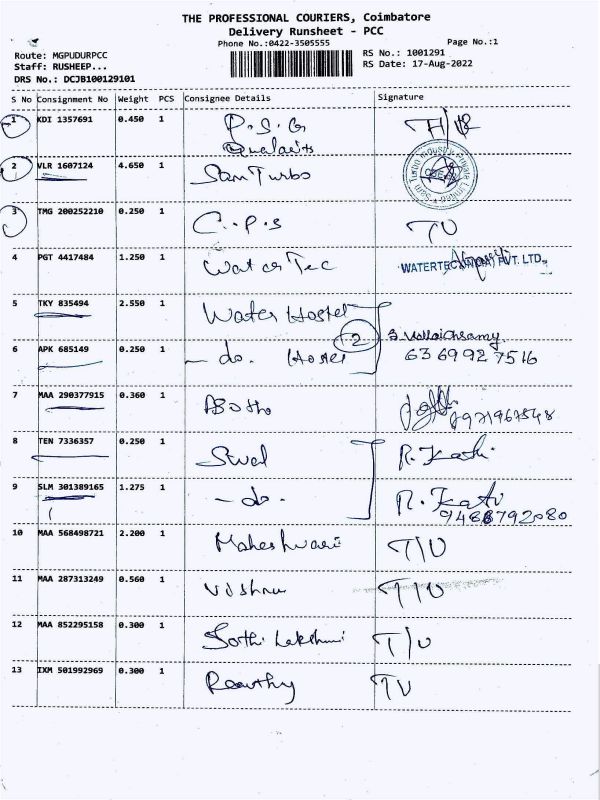 THE PROFESSIONAL COURIERS, Coimbatore
Delivery Runsheet - PCC
Phone No.:0422-3505555
Page No.:1
Route: MGPUDURPCC
Staff: RUSHEEP...
DRS No.: DCJB100129101
RS No.: 1001291
RS Date: 17-Aug-2022
S No Consignment No Weight PCS Consignee Details Signature
1 KDI 1357691 0.450 1 P.S.G
2 VLR 1607124 4.650 1 Sam Turbo
3 TMG 200252210 0.250 1 C.P.S TU
4 PGT 4417484 1.250 1 Water Tec WATERTEC PVT. LTD.
5 TKY 835494 2.550 1 Water Hostel
2
6 APK 685149 0.250 1 - do. Hostel 63 69 92 7516
7 MAA 290377915 0.360 1
8 TEN 7336357 0.250 1 R.
9 SLM 301389165 1.275 1 - do. R.
10 MAA 568498721 2.200 1 Maheshwari T/U
11 MAA 287313249 0.560 1 Vishnu T/U
12 MAA 852295158 0.300 1 Jothi Lakshmi T/U
13 IXM 501992969 0.300 1 TU